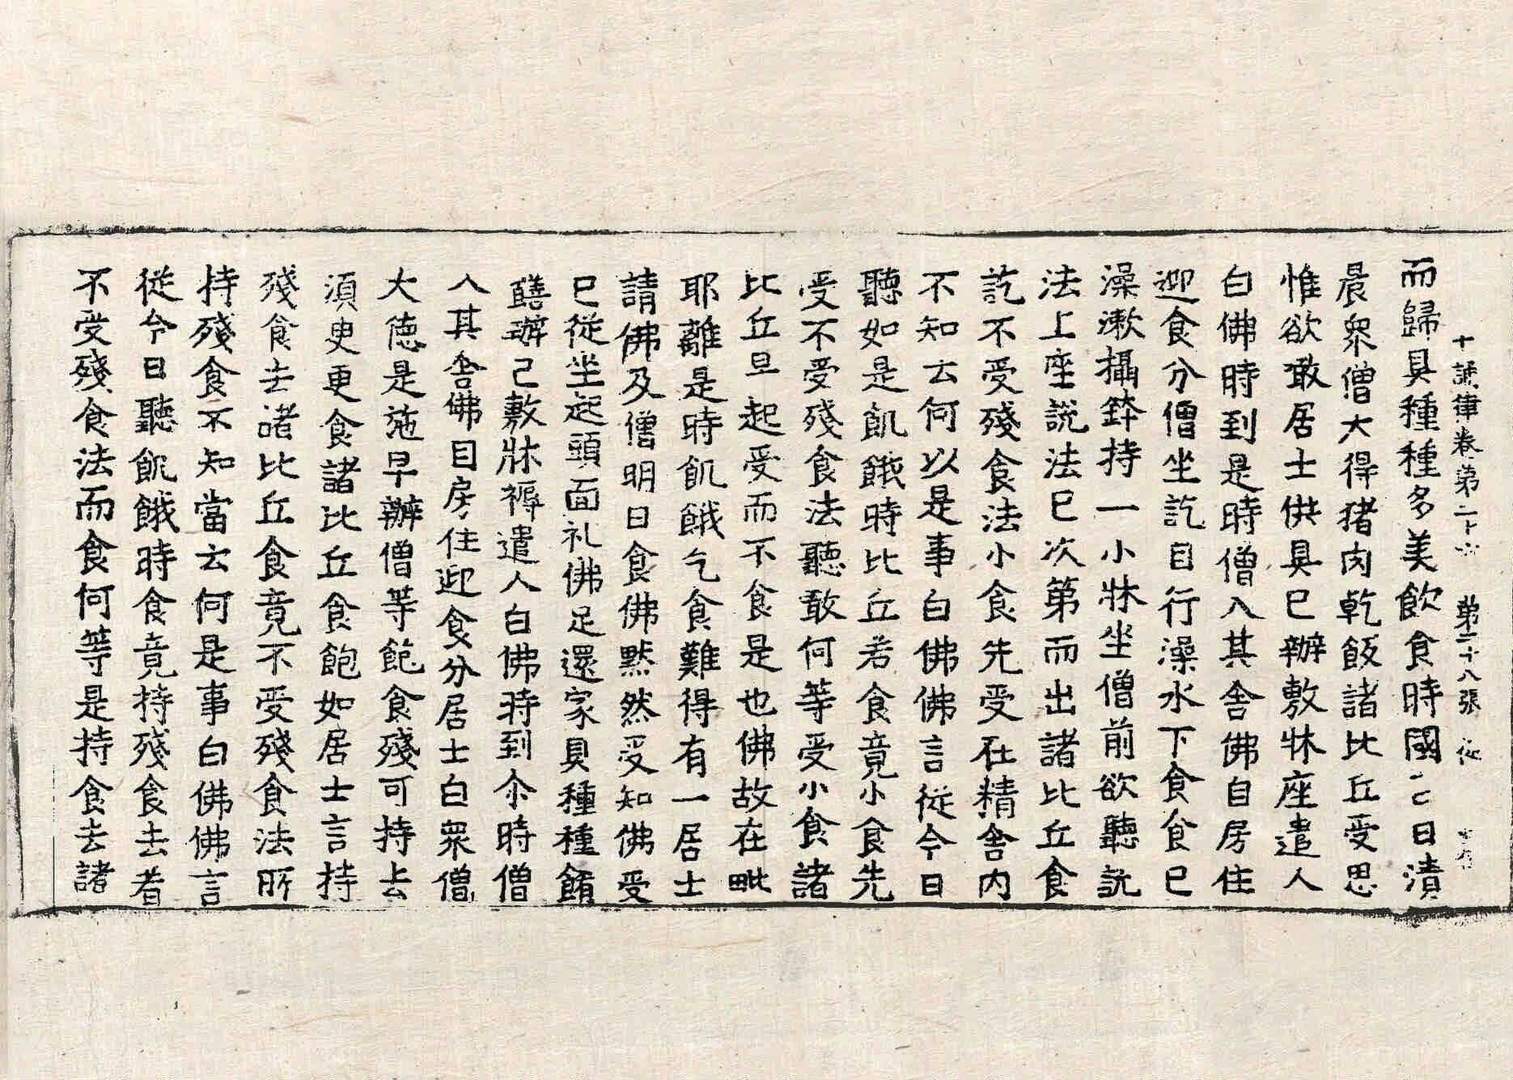 十誦律卷第二十六 第二十八張 從
而歸具種種多美飲食時國亡日漬
晨衆僧大得猪肉乾飯諸比丘受思
惟欲敢居士供具已辦敷牀座遣人
白佛時到是時僧入其舍佛自房住
迎食分僧坐訖自行澡水下食食已
澡漱攝鉢持一小牀坐僧前欲聽說
法上座說法已次第而出諸比丘食
訖不受殘食法小食先受在精舍内
不知云何以是事白佛佛言從今日
聽如是飢餓時比丘若食竟小食先
受不受殘食法聽敢何等受小食諸
比丘旦起受而不食是也佛故在毗
耶離是時飢餓乞食難得有一居士
請佛及僧明日食佛黙然受知佛受
已從坐起頭面礼佛足還家具種種餚
饍辦已敷牀褥遣人白佛時到尒時僧
入其舍佛自房住迎食分居士白衆僧
大德是施早辦僧等飽食殘可持去
須臾更食諸比丘食飽如居士言持
殘食去諸比丘食竟不受殘食法所
持殘食不知當云何是事白佛佛言
從今日聽飢餓時食竟持殘食去者
不受殘食法而食何等是持食去諸